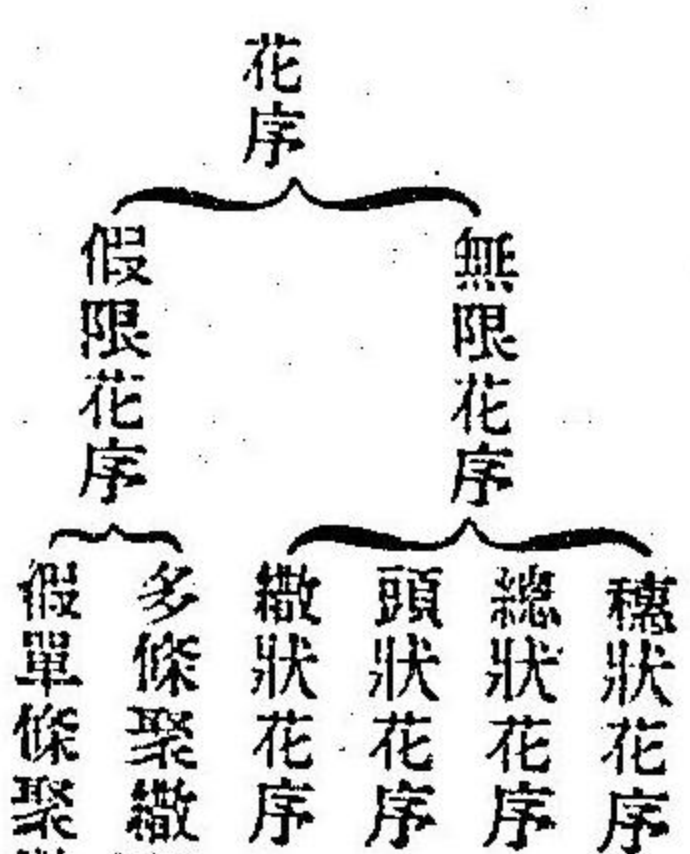 花序
無限花序
假限花序
穗狀花序
總狀花序
頭狀花序
繖狀花序
多條聚繖
假單條聚